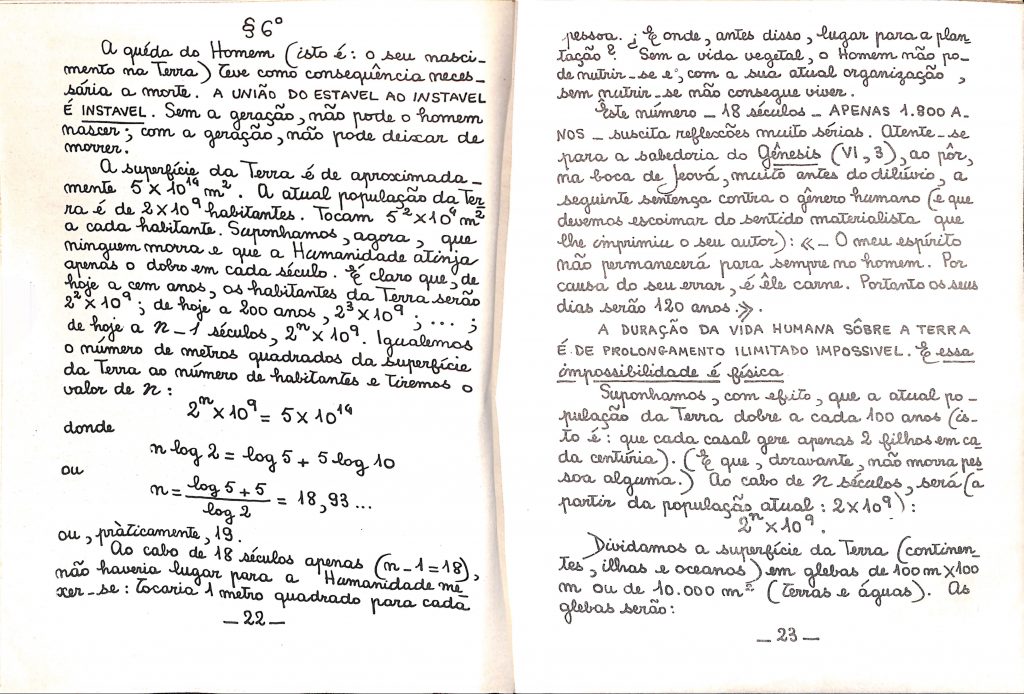 § 6º
A quéda do Homem (isto é: o seu nasci-
mento na Terra) teve como consequência neces-
sária a morte. A UNIÃO DO ESTAVEL AO INSTAVEL
É INSTAVEL. Sem a geração, não pode o homem
nascer; com a geração, não pode deixar de
morrer.
A superfície da Terra é de aproximada-
mente 5 x 10¹⁴ m². A atual população da Ter
ra é de 2 x 10⁹ habitantes. Tocam 5² x 10⁴ m²
a cada habitante. Suponhamos, agora, que
ninguem morra e que a Humanidade atinja
apenas o dobro em cada século. É claro que, de
hoje a cem anos, os habitantes da Terra serão
2² x 10⁹; de hoje a 200 anos, 2³ x 10⁹; ...;
de hoje a n-1 séculos, 2ⁿ x 10⁹. Igualemos
o número de metros quadrados da superfície
da Terra ao número de habitantes e tiremos o
valor de n:
2ⁿ x 10⁹ = 5 x 10¹⁴
donde
n log 2 = log 5 + 5 log 10
ou
n = (log 5 + 5) / log 2 = 18,93 ...
ou, pràticamente, 19.
Ao cabo de 18 séculos apenas (n-1=18),
não haveria lugar para a Humanidade me-
xer-se: tocaria 1 metro quadrado para cada
— 22 —
pessoa. ¿E onde, antes disso, lugar para a plan-
tação? Sem a vida vegetal, o Homem não po-
de nutrir-se e, com a sua atual organização,
sem nutrir-se não consegue viver.
Êste número — 18 séculos — APENAS 1.800 A-
NOS — suscita reflexões muito sérias. Atente-se
para a sabedoria do Gênesis (VI, 3), ao pôr,
na boca de Jeová, muito antes do dilúvio, a
seguinte sentença contra o gênero humano (e que
devemos escoimar do sentido materialista que
lhe imprimiu o seu autor): «— O meu espírito
não permanecerá para sempre no homem. Por
causa do seu errar, é êle carne. Portanto os seus
dias serão 120 anos.».
A DURAÇÃO DA VIDA HUMANA SÔBRE A TERRA
É DE PROLONGAMENTO ILIMITADO IMPOSSIVEL. E essa
impossibilidade é física
Suponhamos, com efeito, que a atual po-
pulação da Terra dobre a cada 100 anos (is-
to é: que cada casal gere apenas 2 filhos em ca
da centúria). (E que, doravante, não morra pes
soa alguma.) Ao cabo de n séculos, será (a
partir da população atual: 2 x 10⁹):
2ⁿ x 10⁹.
Dividamos a superfície da Terra (continen-
tes, ilhas e oceanos) em glebas de 100 m x 100
m ou de 10.000 m² (terras e águas). As
glebas serão:
— 23 —